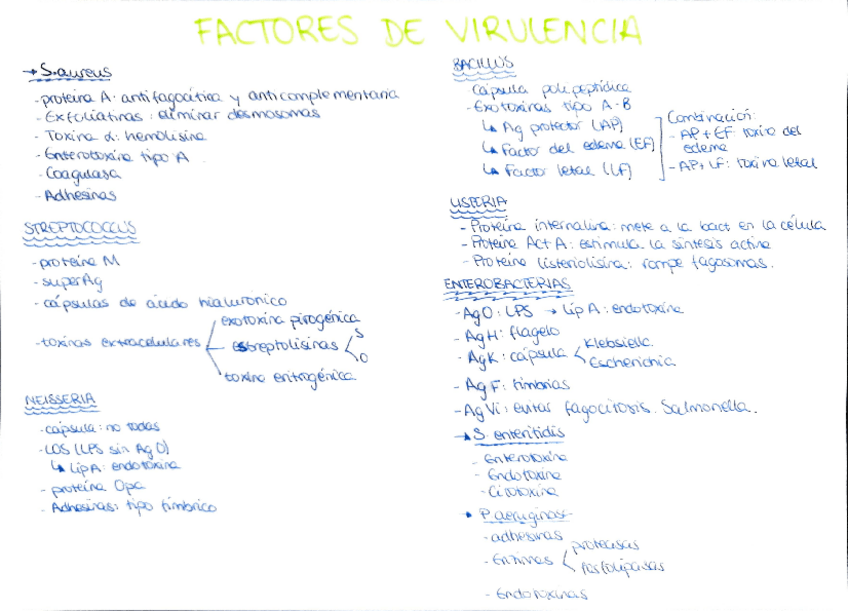 FACTORES DE VIRULENCIA
→ S. aureus
- proteína A: antifagocítica y anticomplementaria
- Exfoliatinas: eliminar desmosomas
- Toxina α: hemolisina
- Enterotoxina tipo A
- Coagulasa
- Adhesinas
STREPTOCOCCUS
- proteína M
- superAg
- cápsulas de ácido hialurónico
- toxinas extracelulares
exotoxina pirogénica
estreptolisinas
S
O
toxina eritrogénica
NEISSERIA
- cápsula: no todas
- LOS (LPS sin Ag O)
↳ Lip A: endotoxina
- proteína Opa
- Adhesinas: tipo fímbrico
BACILLUS
- Cápsula polipeptídica
- Exotoxinas tipo A-B
↳ Ag protector (AP)
↳ Factor del edema (EF)
↳ Factor letal (LF)
Combinación:
- AP + EF: toxina del
edema
- AP + LF: toxina letal
LISTERIA
- Proteína internalina: mete a la bact en la célula
- Proteína Act A: estimula la síntesis actina
- Proteína listeriolisina: rompe fagosomas.
ENTEROBACTERIAS
- Ag O: LPS → Lip A: endotoxina
- Ag H: flagelo
- Ag K: cápsula
Klebsiella
Escherichia
- Ag F: fimbrias
- Ag Vi: evitar fagocitosis. Salmonella.
→ S. enteritidis
- Enterotoxina
- Endotoxina
- Citotoxina
→ P. aeruginosa
- adhesinas
- Enzimas
proteasas
fosfolipasas
- Endotoxinas